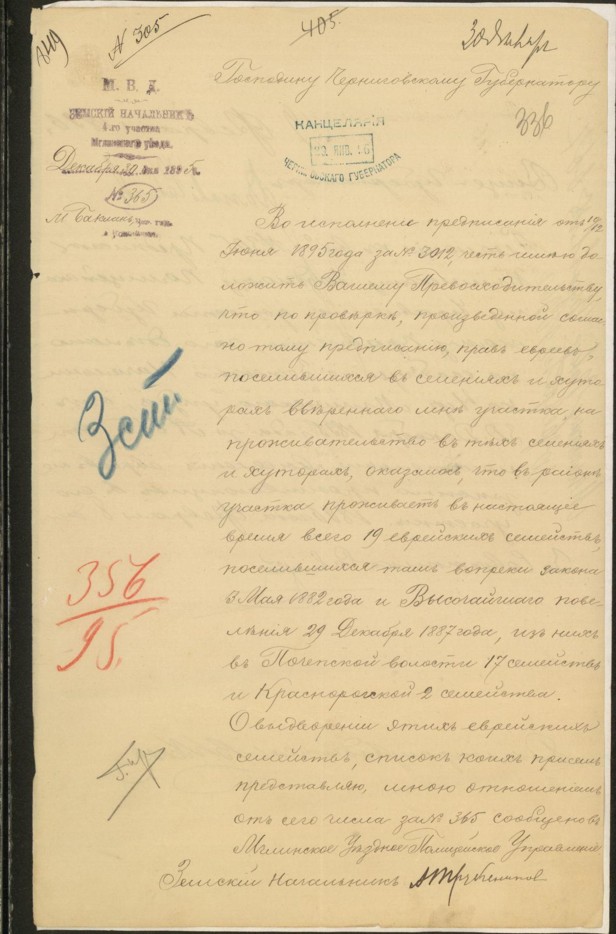 № 305
405.
Господину Черниговскому Губернатору
336
М. В. Д.
ЗЕМСКІЙ НАЧАЛЬНИКЪ
4-го участка
Мглинскаго уѣзда.
Декабря
№ 365
КАНЦЕЛЯРІЯ
ЧЕРНИГОВСКАГО ГУБЕРНАТОРА
М. Баклань
Во исполненіе предписанія отъ 10/12
Іюня 1895 года за № 3012, честь имѣю до-
ложить Вашему Превосходительству,
что по провѣркѣ, произведенной соглас-
но тому предписанію, правъ евреевъ,
поселившихся въ селеніяхъ и хуто-
рахъ ввѣреннаго мнѣ участка, на
проживательство въ тѣхъ селеніяхъ
и хуторахъ, оказалось, что въ районѣ
участка проживаетъ въ настоящее
время всего 19 еврейскихъ семействъ,
поселившихся тамъ вопреки закона
3 Мая 1882 года и Высочайшаго пове-
лѣнія 29 Декабря 1887 года, изъ нихъ
въ Почепской волости 17 семействъ
и Краснорогской 2 семейства.
О выдвореніи этихъ еврейскихъ
семействъ, списокъ коихъ присемъ
представляю, мною отношеніемъ
отъ сего числа за № 365 сообщено въ
Мглинское Уѣздное Полицейское Управленіе
Земскій Начальникъ
3 ст
356
95.